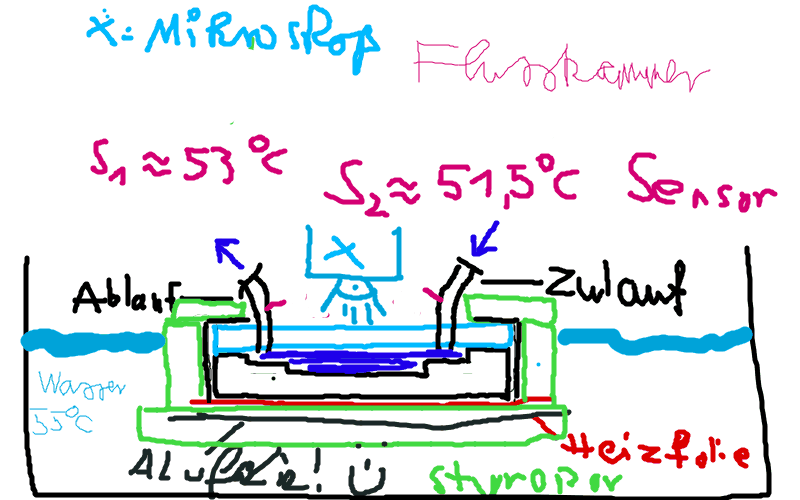 X: Mikroskop
Flusskammer
S1 ≈ 53°C
S2 ≈ 51,5°C Sensor
X
Ablauf
Zulauf
Wasser
55°C
Heizfolie
Alufolie!
Styropor